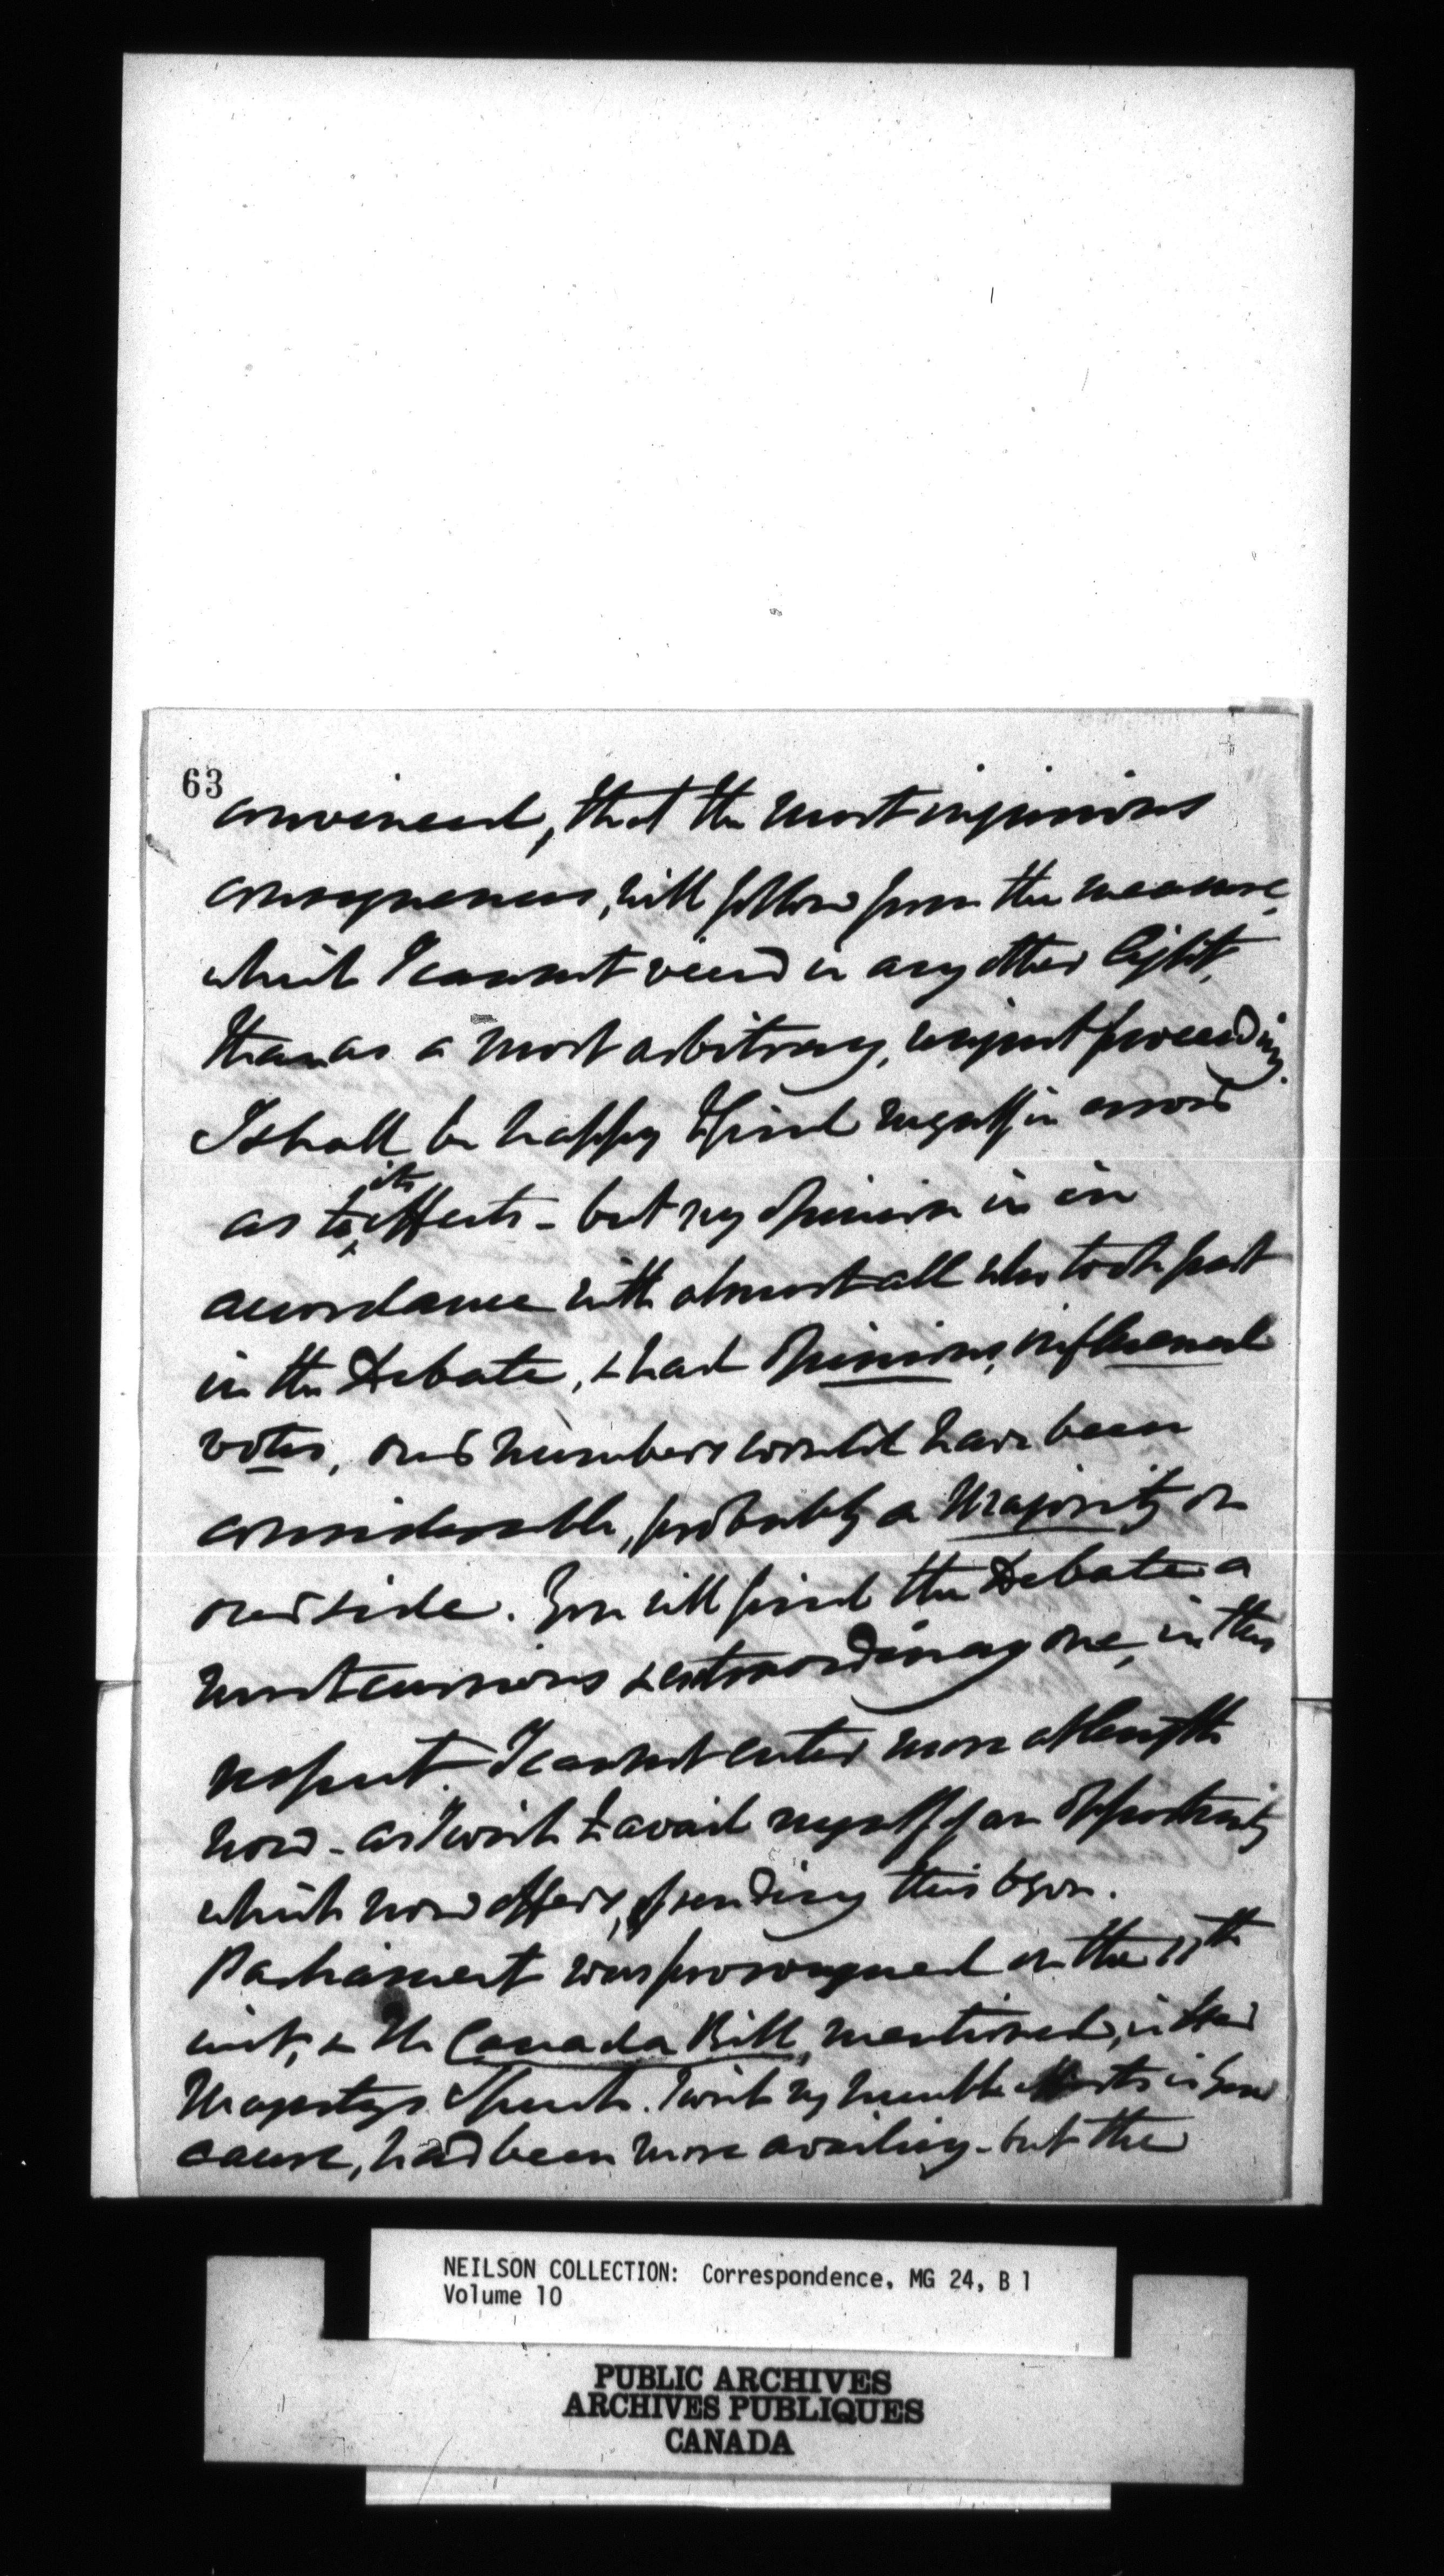 63
convinced, that the most injurious
consequences, will follow from the measure,
which I cannot view in any other light,
than as a most arbitrary, unjust proceeding.
I shall be happy to find myself in error
as to its effects - but my opinion is in
accordance with almost all who took part
in the Debate, & had opinions, influenced
votes, our numbers would have been
considerable, probably a Majority on
our side. You will find the Debate a
most curious & extraordinary one, in this
respect I cannot enter more at length
now - as I wish to avail myself of an opportunity
which now offers, of sending this to you.
Parliament was prorogued on the 11th
inst, & the Canada Bill, mentioned, in Her
Majestys Speech. I wish my humble efforts in your
cause, had been more availing - but the
NEILSON COLLECTION: Correspondence, MG 24, B 1
Volume 10
PUBLIC ARCHIVES
ARCHIVES PUBLIQUES
CANADA